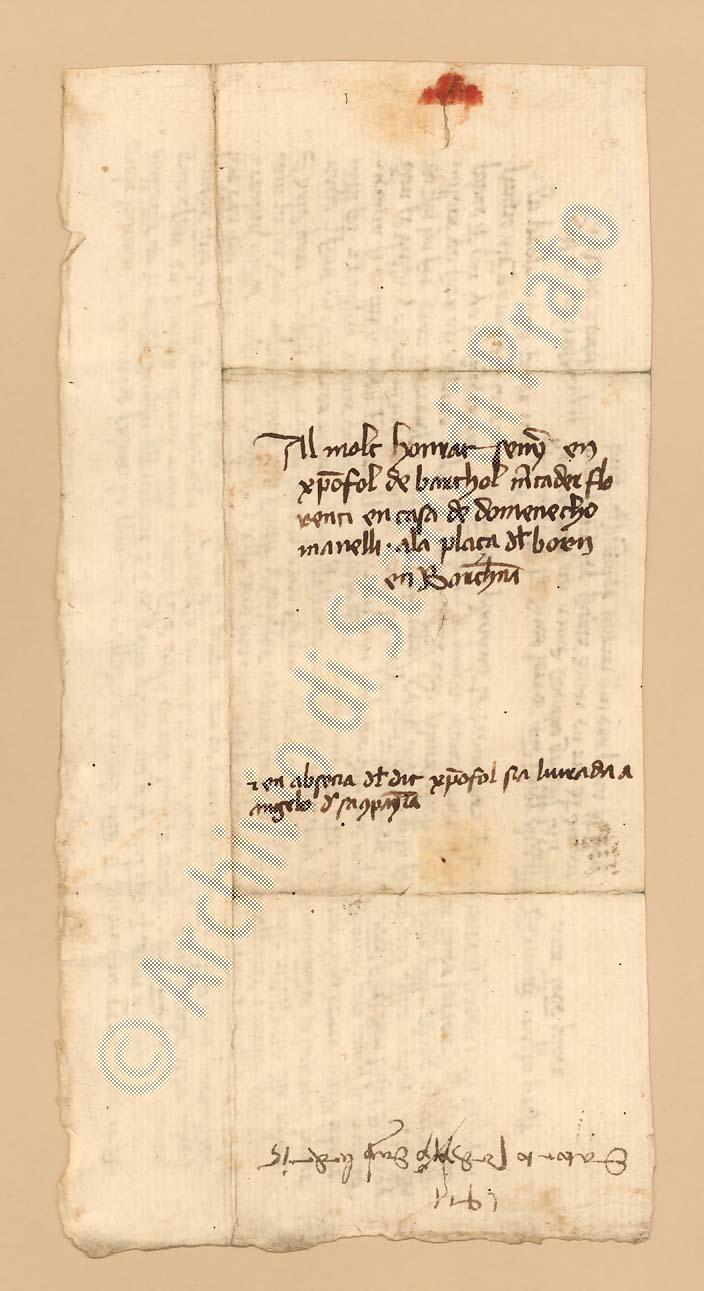 Al molt honrat seny en
xpofol de barthol mcader flo
renti en casa de domenecho
manelli · ala plaça dl born
en Barchna
en absecia dl dit xpofol sia liurada a
angelo d sa cpayia
© Archivio di Stato di Prato